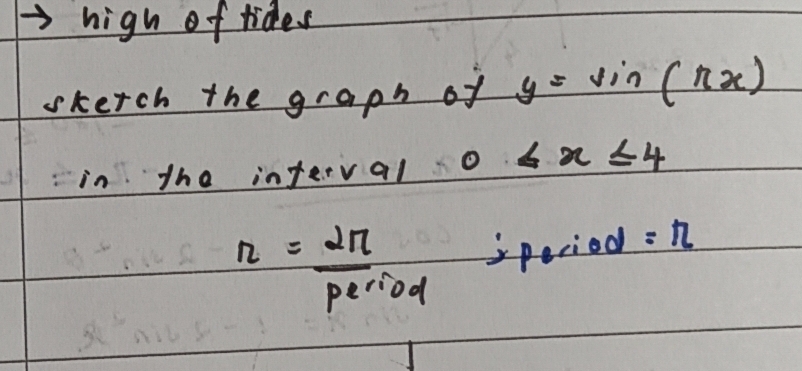 → high of tides
sketch the graph of y = sin (πx)
in the interval 0 ≤ x ≤ 4
π = 2π/period ; period = π